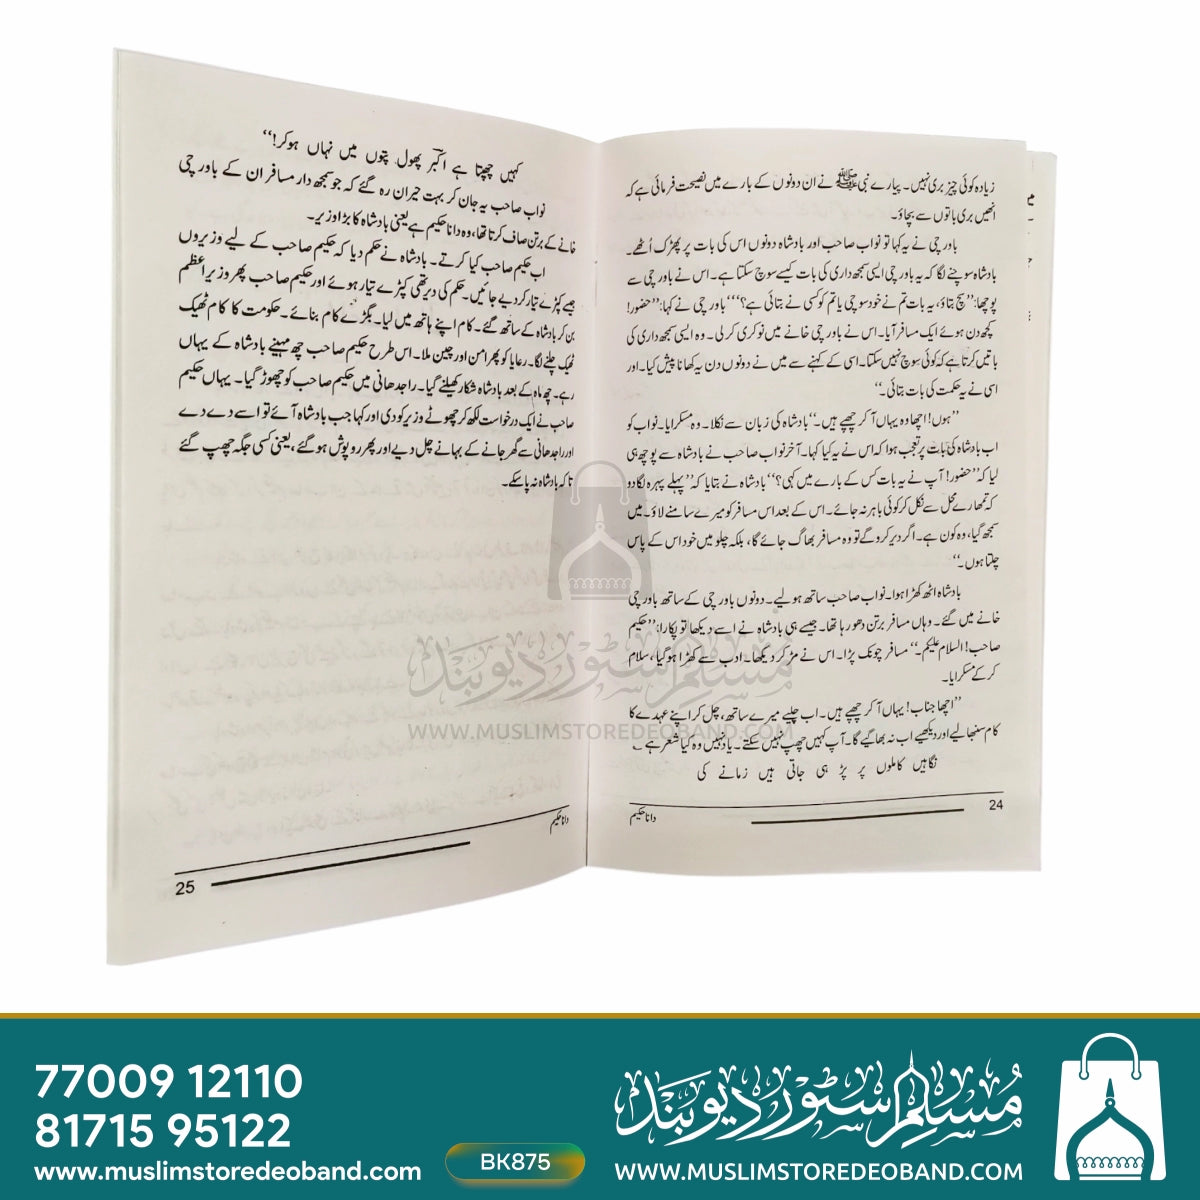 زیادہ کوئی چیز بری نہیں۔ پیارے نبی ﷺ نے ان دونوں کے بارے میں نصیحت فرمائی ہے کہ
انھیں بری باتوں سے بچاؤ۔
باورچی نے یہ کہا تو نواب صاحب اور بادشاہ دونوں اس کی بات پر پھڑک اُٹھے۔
بادشاہ سوچنے لگا کہ یہ باورچی ایسی سمجھ داری کی بات کیسے سوچ سکتا ہے۔ اس نے باورچی سے
پوچھا: ”سچ بتاؤ، یہ بات تم نے خود سوچی یا تم کو کسی نے بتائی ہے؟“ باورچی نے کہا: ”حضور!
کچھ دن ہوئے ایک مسافر آیا۔ اس نے باورچی خانے میں نوکری کر لی۔ وہ ایسی سمجھ داری کی
باتیں کرتا ہے کہ کوئی سوچ نہیں سکتا۔ اسی کے کہنے سے میں نے دونوں دن یہ کھانا پیش کیا۔ اور
اسی نے یہ حکمت کی بات بتائی۔“
”ہوں! اچھا وہ یہاں آ کر چھپے ہیں۔“ بادشاہ کی زبان سے نکلا۔ وہ مسکرایا۔ نواب کو
اب بادشاہ کی بات پر تعجب ہوا کہ اس نے یہ کیا کہا۔ آخر نواب صاحب نے بادشاہ سے پوچھ ہی
لیا کہ ”حضور! آپ نے یہ بات کس کے بارے میں کہی؟“ بادشاہ نے بتایا کہ ”پہلے پہرہ لگا دو
کہ تمھارے محل سے نکل کر کوئی باہر نہ جائے۔ اس کے بعد اس مسافر کو میرے سامنے لاؤ۔ میں
سمجھ گیا، وہ کون ہے۔ اگر دیر کرو گے تو وہ مسافر بھاگ جائے گا، بلکہ چلو میں خود اس کے پاس
چلتا ہوں۔“
بادشاہ اٹھ کھڑا ہوا۔ نواب صاحب ساتھ ہو لیے۔ دونوں باورچی کے ساتھ باورچی
خانے میں گئے۔ وہاں مسافر برتن دھو رہا تھا۔ جیسے ہی بادشاہ نے اسے دیکھا تو پکارا: ”حکیم
صاحب! السلام علیکم۔“ مسافر چونک پڑا۔ اس نے مڑ کر دیکھا۔ ادب سے کھڑا ہو گیا، سلام
کر کے مسکرایا۔
”اچھا جناب! یہاں آ کر چھپے ہیں۔ اب چلیے میرے ساتھ، چل کر اپنے عہدے کا
کام سنبھالیے اور دیکھیے اب نہ بھاگیے گا۔ آپ کہیں چھپ نہیں سکتے۔ یاد نہیں وہ کیا شعر ہے ؎
نگاہیں کاملوں پر پڑ ہی جاتی ہیں زمانے کی
دانا حکیم
24
کہیں چھپتا ہے اکبرؔ پھول پتوں میں نہاں ہو کر!“
نواب صاحب یہ جان کر بہت حیران رہ گئے کہ جو سمجھ دار مسافر ان کے باورچی
خانے کے برتن صاف کرتا تھا، وہ دانا حکیم ہے یعنی بادشاہ کا بڑا وزیر۔
اب حکیم صاحب کیا کرتے۔ بادشاہ نے حکم دیا کہ حکیم صاحب کے لیے وزیروں
جیسے کپڑے تیار کر دیے جائیں۔ حکم کی دیر تھی کپڑے تیار ہوئے اور حکیم صاحب پھر وزیر اعظم
بن کر بادشاہ کے ساتھ گئے۔ کام اپنے ہاتھ میں لیا۔ بگڑے کام بنائے۔ حکومت کا کام ٹھیک
ٹھیک چلنے لگا۔ رعایا کو پھر امن اور چین ملا۔ اس طرح حکیم صاحب چھ مہینے بادشاہ کے یہاں
رہے۔ چھ ماہ کے بعد بادشاہ شکار کھیلنے گیا۔ راجدھانی میں حکیم صاحب کو چھوڑ گیا۔ یہاں حکیم
صاحب نے ایک درخواست لکھ کر چھوٹے وزیر کو دی اور کہا جب بادشاہ آئے تو اسے دے دے
اور راجدھانی سے گھر جانے کے بہانے چل دیے اور پھر روپوش ہو گئے، یعنی کسی جگہ چھپ گئے
تاکہ بادشاہ نہ پا سکے۔
دانا حکیم
25
مسلم سٹور دیوبند
WWW.MUSLIMSTOREDEOBAND.COM
77009 12110
81715 95122
www.muslimstoredeoband.com
BK875
مسلم سٹور دیوبند
WWW.MUSLIMSTOREDEOBAND.COM